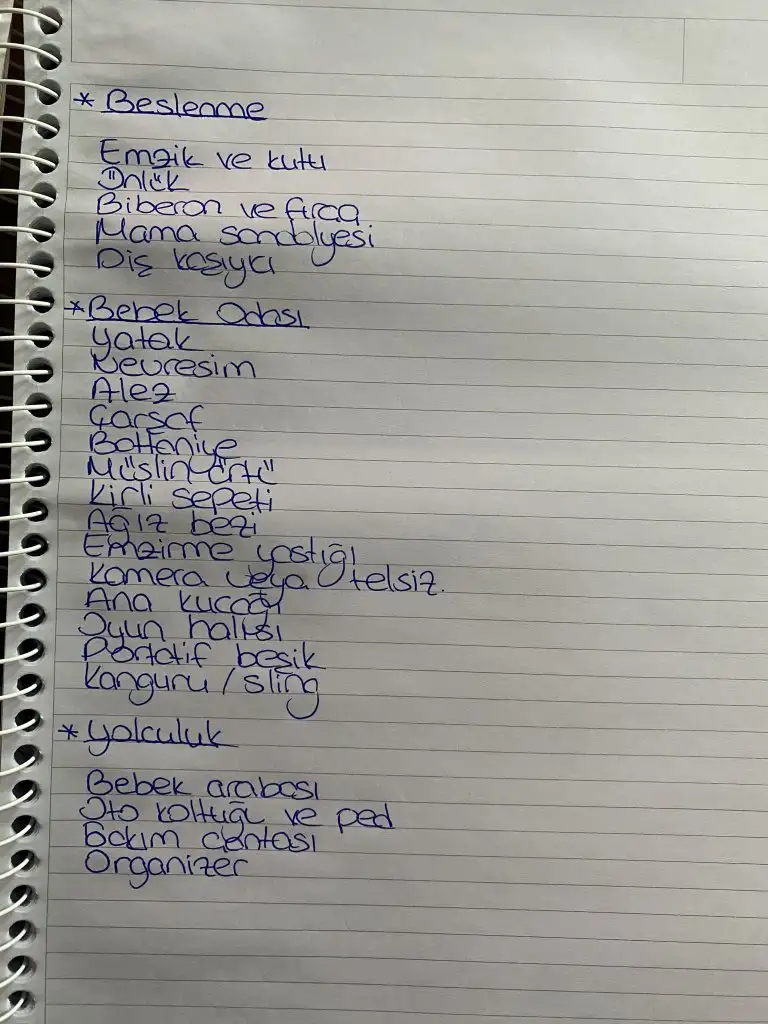 * Beslenme
Emzik ve kutu
Önlük
Biberon ve fırça
Mama sandalyesi
Diş kaşıyıcı
* Bebek Odası
Yatak
Nevresim
Alez
Çarşaf
Battaniye
Müslin örtü
Kirli sepeti
Ağız bezi
Emzirme yastığı
Kamera veya telsiz.
Ana kucağı
Oyun halısı
Portatif beşik
Kanguru / sling
* Yolculuk
Bebek arabası
Oto koltuğu ve ped
Bakım çantası
Organizer